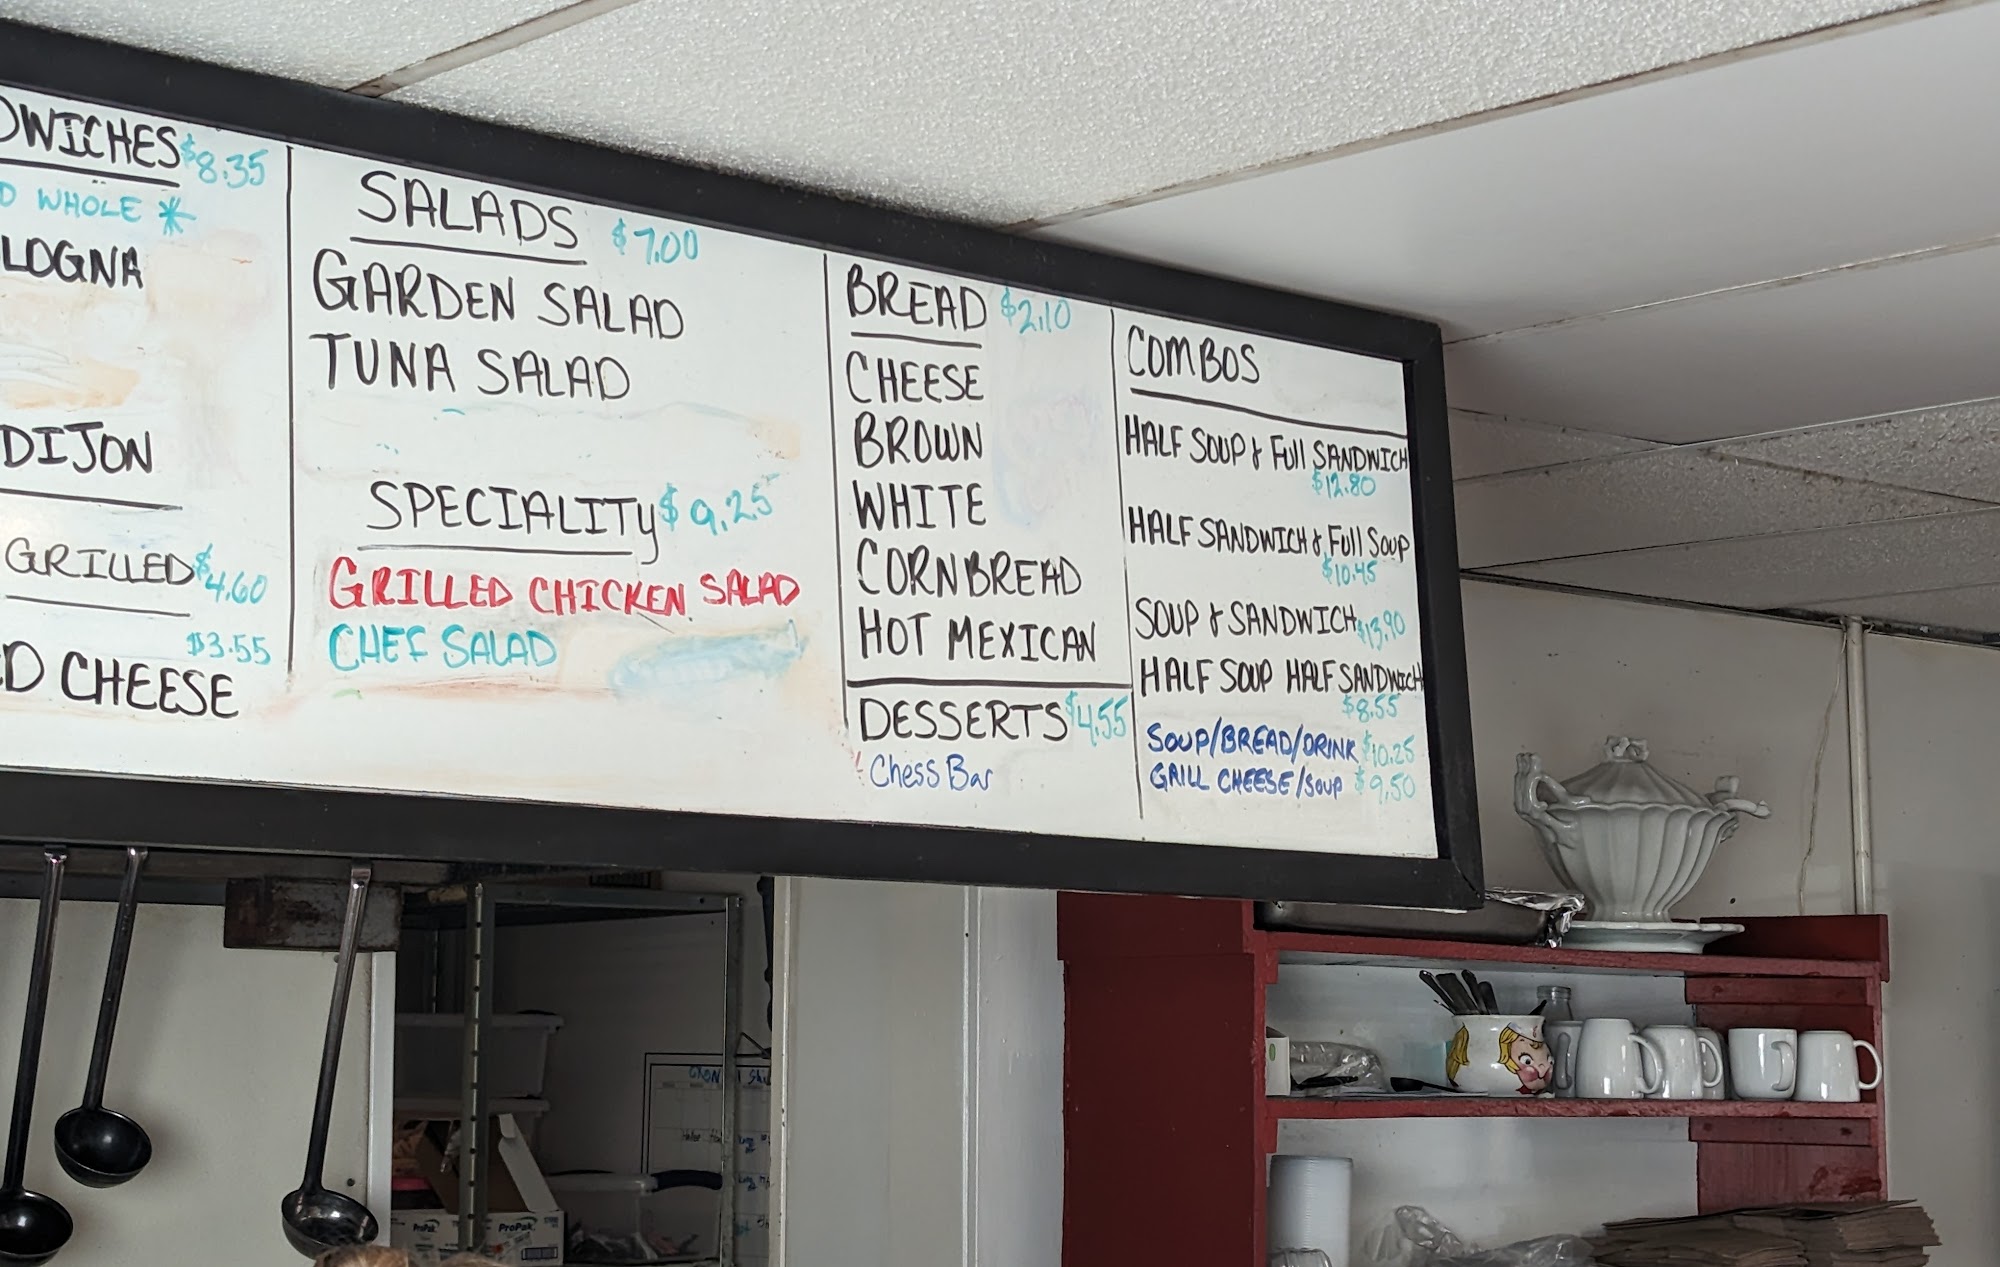 DWICHES $8.35
D WHOLE *
LOGNA
DIJON
GRILLED $4.60
$3.55
D CHEESE
SALADS $7.00
GARDEN SALAD
TUNA SALAD
SPECIALITY $9.25
GRILLED CHICKEN SALAD
CHEF SALAD
BREAD $2.10
CHEESE
BROWN
WHITE
CORNBREAD
HOT MEXICAN
DESSERTS $4.55
Chess Bar
COMBOS
HALF SOUP & Full SANDWICH
$12.80
HALF SANDWICH & Full SOUP
$10.45
SOUP & SANDWICH $13.90
HALF SOUP HALF SANDWICH
$8.55
SOUP/BREAD/DRINK $10.25
GRILL CHEESE/SOUP $9.50
ProPak
ProPak